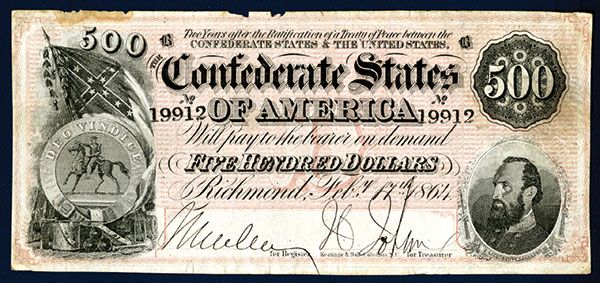 500 B Two Years after the Ratification of a Treaty of Peace between the B
CONFEDERATE STATES & THE UNITED STATES,
THE
Confederate States 500
No No
19912 OF AMERICA 19912
Will pay to the bearer on demand
DEO VINDICE
FIVE HUNDRED DOLLARS
Richmond, Feby. 17th 1864
for Register Keatinge & Ball, Columbia, S.C. for Treasurer